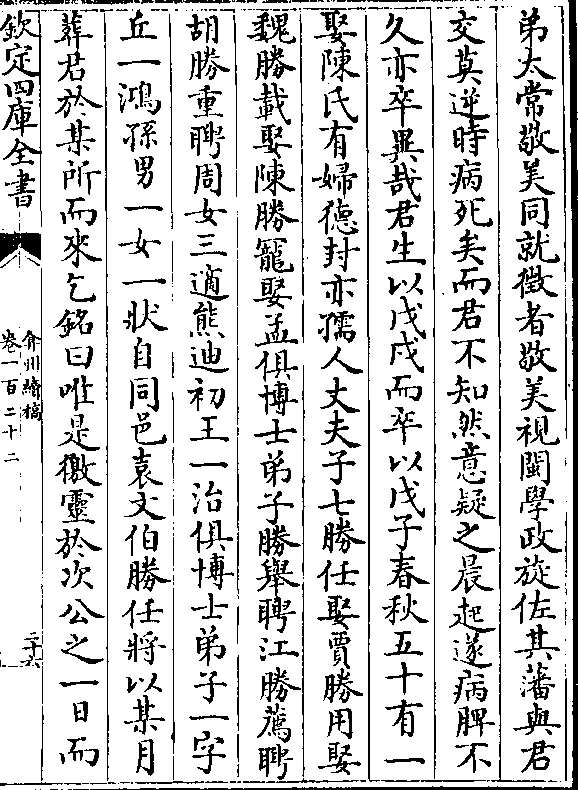 弟太常敬美同就徵者敬美視閩學政旋佐其藩與君
交莫逆時病死矣而君不知然意疑之晨起遂病脾不
久亦卒異哉君生以戊戌而卒以戊子春秋五十有一
娶陳氏有婦德封亦孺人丈夫子七勝任娶賈勝用娶
魏勝載娶陳勝寵娶孟俱博士弟子勝舉聘江勝薦聘
胡勝重聘周女三適熊迪初王一治俱博士弟子一字
丘一鴻孫男一女一狀自同邑袁文伯勝任將以某月
葬君於某所而來乞銘曰唯是徼靈於次公之一日而
欽定四庫全書
弇州續稿
卷一百二十二
二十六